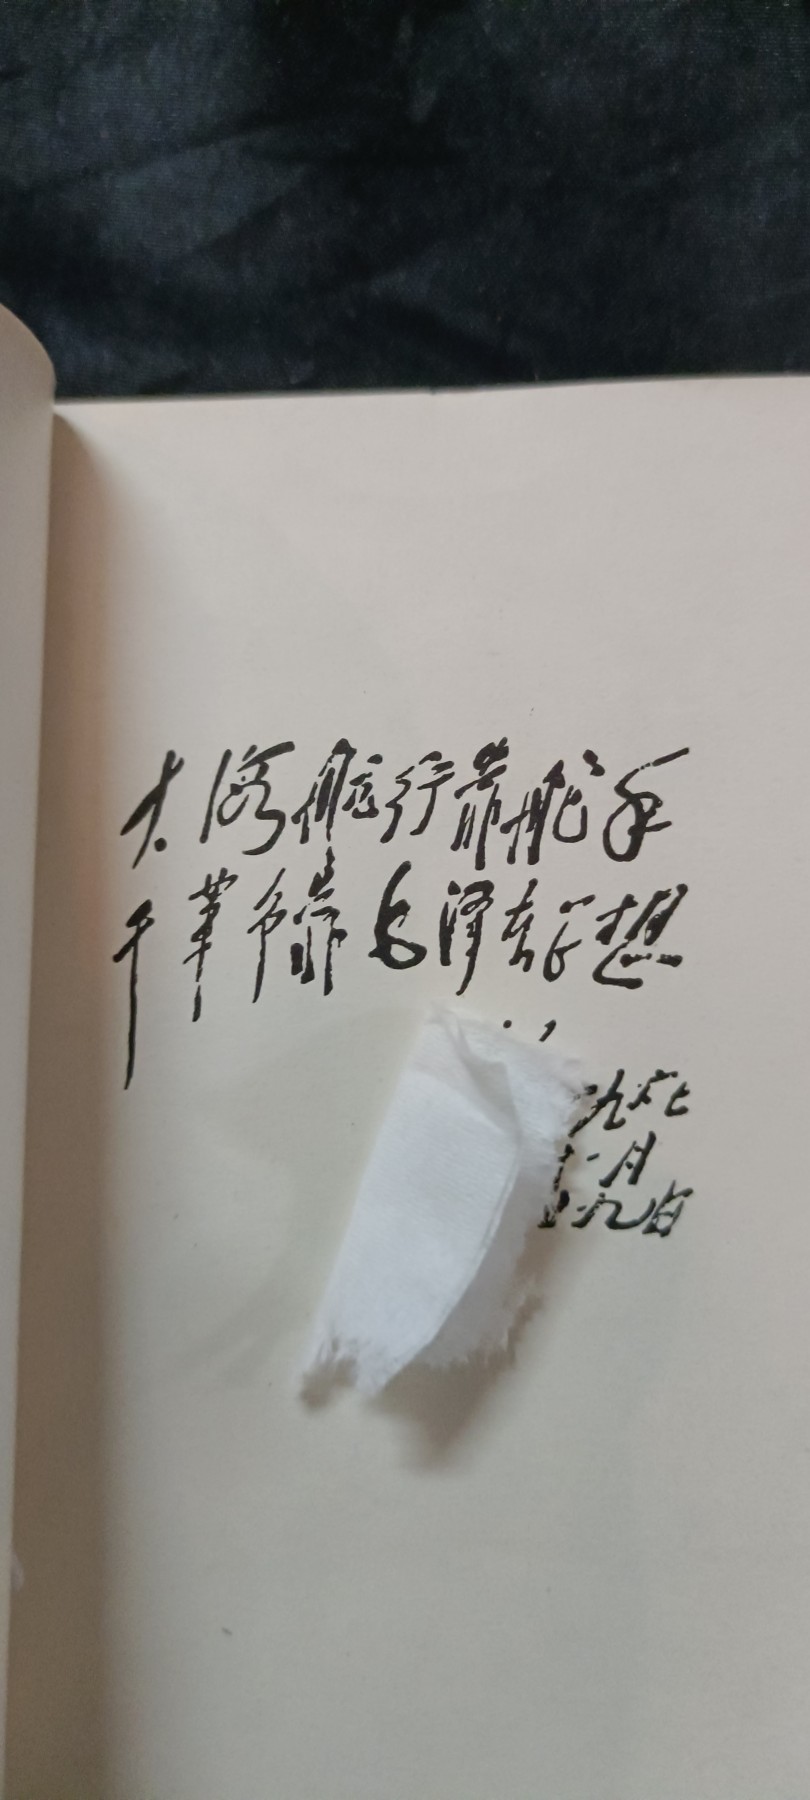 大海航行靠舵手
干革命靠毛泽东思想
九六七
十一月
廿九日